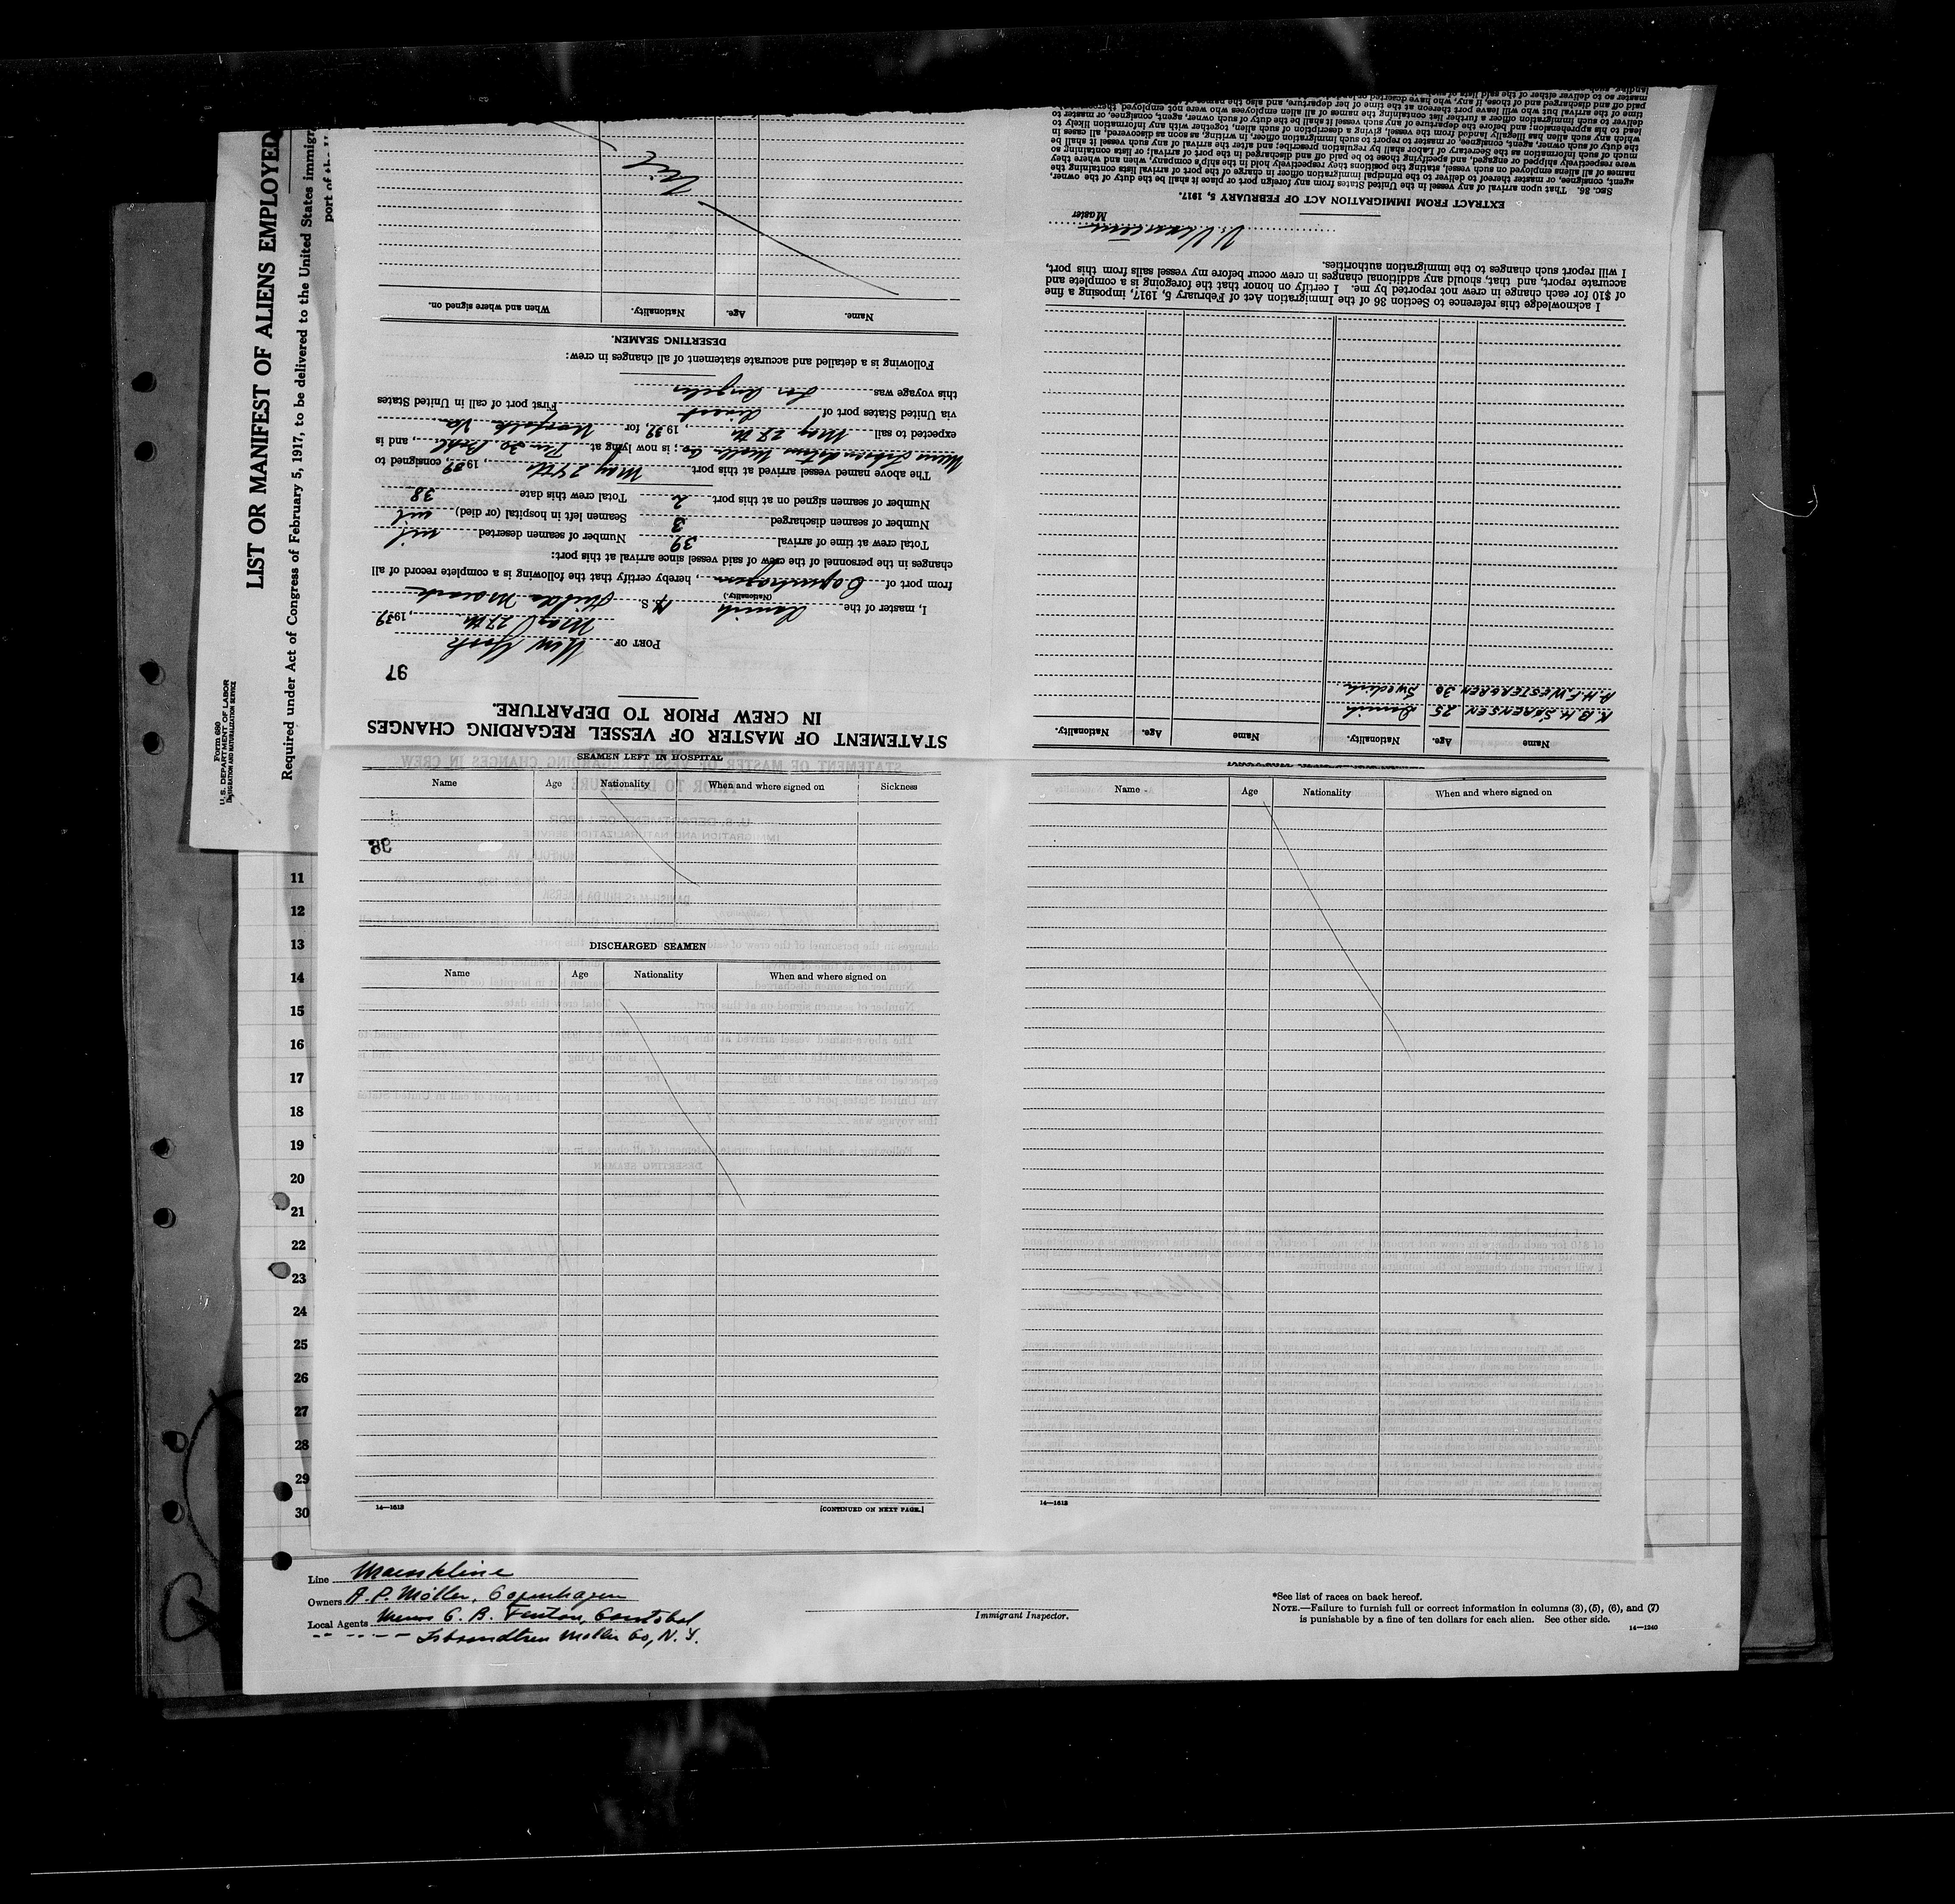 Form 680
U. S. DEPARTMENT OF LABOR
IMMIGRATION AND NATURALIZATION SERVICE
LIST OR MANIFEST OF ALIENS EMPLOYED
Required under Act of Congress of February 5, 1917, to be delivered to the United States immigr
port of the U
STATEMENT OF MASTER OF VESSEL REGARDING CHANGES
IN CREW PRIOR TO DEPARTURE.
97
PORT OF New York
May 27th, 1939
I, master of the Danish M. S. Hilda Maersk
(Nationality.)
from port of Copenhagen, hereby certify that the following is a complete record of all
changes in the personnel of the crew of said vessel since arrival at this port:
Total crew at time of arrival 39 Number of seamen deserted nil
Number of seamen discharged 3 Seamen left in hospital (or died) nil
Number of seamen signed on at this port 2 Total crew this date 38
The above named vessel arrived at this port May 24th, 1939, consigned to
Moller Co; is now lying at Pier 30 Bkl, and is
expected to sail May 27th, 1939, for Norfolk Va
via United States port of direct First port of call in United States
this voyage was Los Angeles
Following is a detailed and accurate statement of all changes in crew:
DESERTING SEAMEN.
Name. Age. Nationality. When and where signed on.
Nil
Name Age. Nationality. Name Age. Nationality.
K.B.H. SØRENSEN 25 Danish
H.H.F. WESTERGREN 30 Swedish
I acknowledge this reference to Section 36 of the Immigration Act of February 5, 1917, imposing a fine
of $10 for each change in crew not reported by me. I certify on honor that the foregoing is a complete and
accurate report, and that, should any additional changes in crew occur before my vessel sails from this port,
I will report such changes to the immigration authorities.
Master
EXTRACT FROM IMMIGRATION ACT OF FEBRUARY 5, 1917.
SEC. 36. That upon arrival of any vessel in the United States from any foreign port or place it shall be the duty of the owner,
agent, consignee, or master thereof to deliver to the principal immigration officer in charge of the port of arrival lists containing the
names of all aliens employed on such vessel, stating the positions they respectively hold in the ship's company, when and where they
were respectively shipped or engaged, and specifying those to be paid off and discharged in the port of arrival; or lists containing so
much of such information as the Secretary of Labor shall by regulation prescribe; and after the arrival of any such vessel it shall be
the duty of such owner, agent, consignee, or master to report to such immigration officer, in writing, as soon as discovered, all cases in
which any such alien has illegally landed from the vessel, giving a description of such alien, together with any information likely to
lead to his apprehension; and before the departure of any such vessel it shall be the duty of such owner, agent, consignee, or master to
deliver to such immigration officer a further list containing the names of all alien employees who were not employed
time of the arrival but who will leave port thereon at the time of her departure, and also the names
paid off and discharged and of those, if any, who have deserted or landed
master so to deliver either of the said lists of
SEAMEN LEFT IN HOSPITAL
Name Age Nationality When and where signed on Sickness
38
DISCHARGED SEAMEN
Name Age Nationality When and where signed on
14—1613 [CONTINUED ON NEXT PAGE.]
Name Age Nationality When and where signed on
14—1613
11
12
13
14
15
16
17
18
19
20
21
22
23
24
25
26
27
28
29
30
Line Maerskline
Owners A. P. Möller, Copenhagen
Local Agents Messrs C. B. Fenton, Cristobal
Moller Co, N. Y.
Immigrant Inspector.
*See list of races on back hereof.
NOTE.—Failure to furnish full or correct information in columns (3), (5), (6), and (7)
is punishable by a fine of ten dollars for each alien. See other side.
14—1240